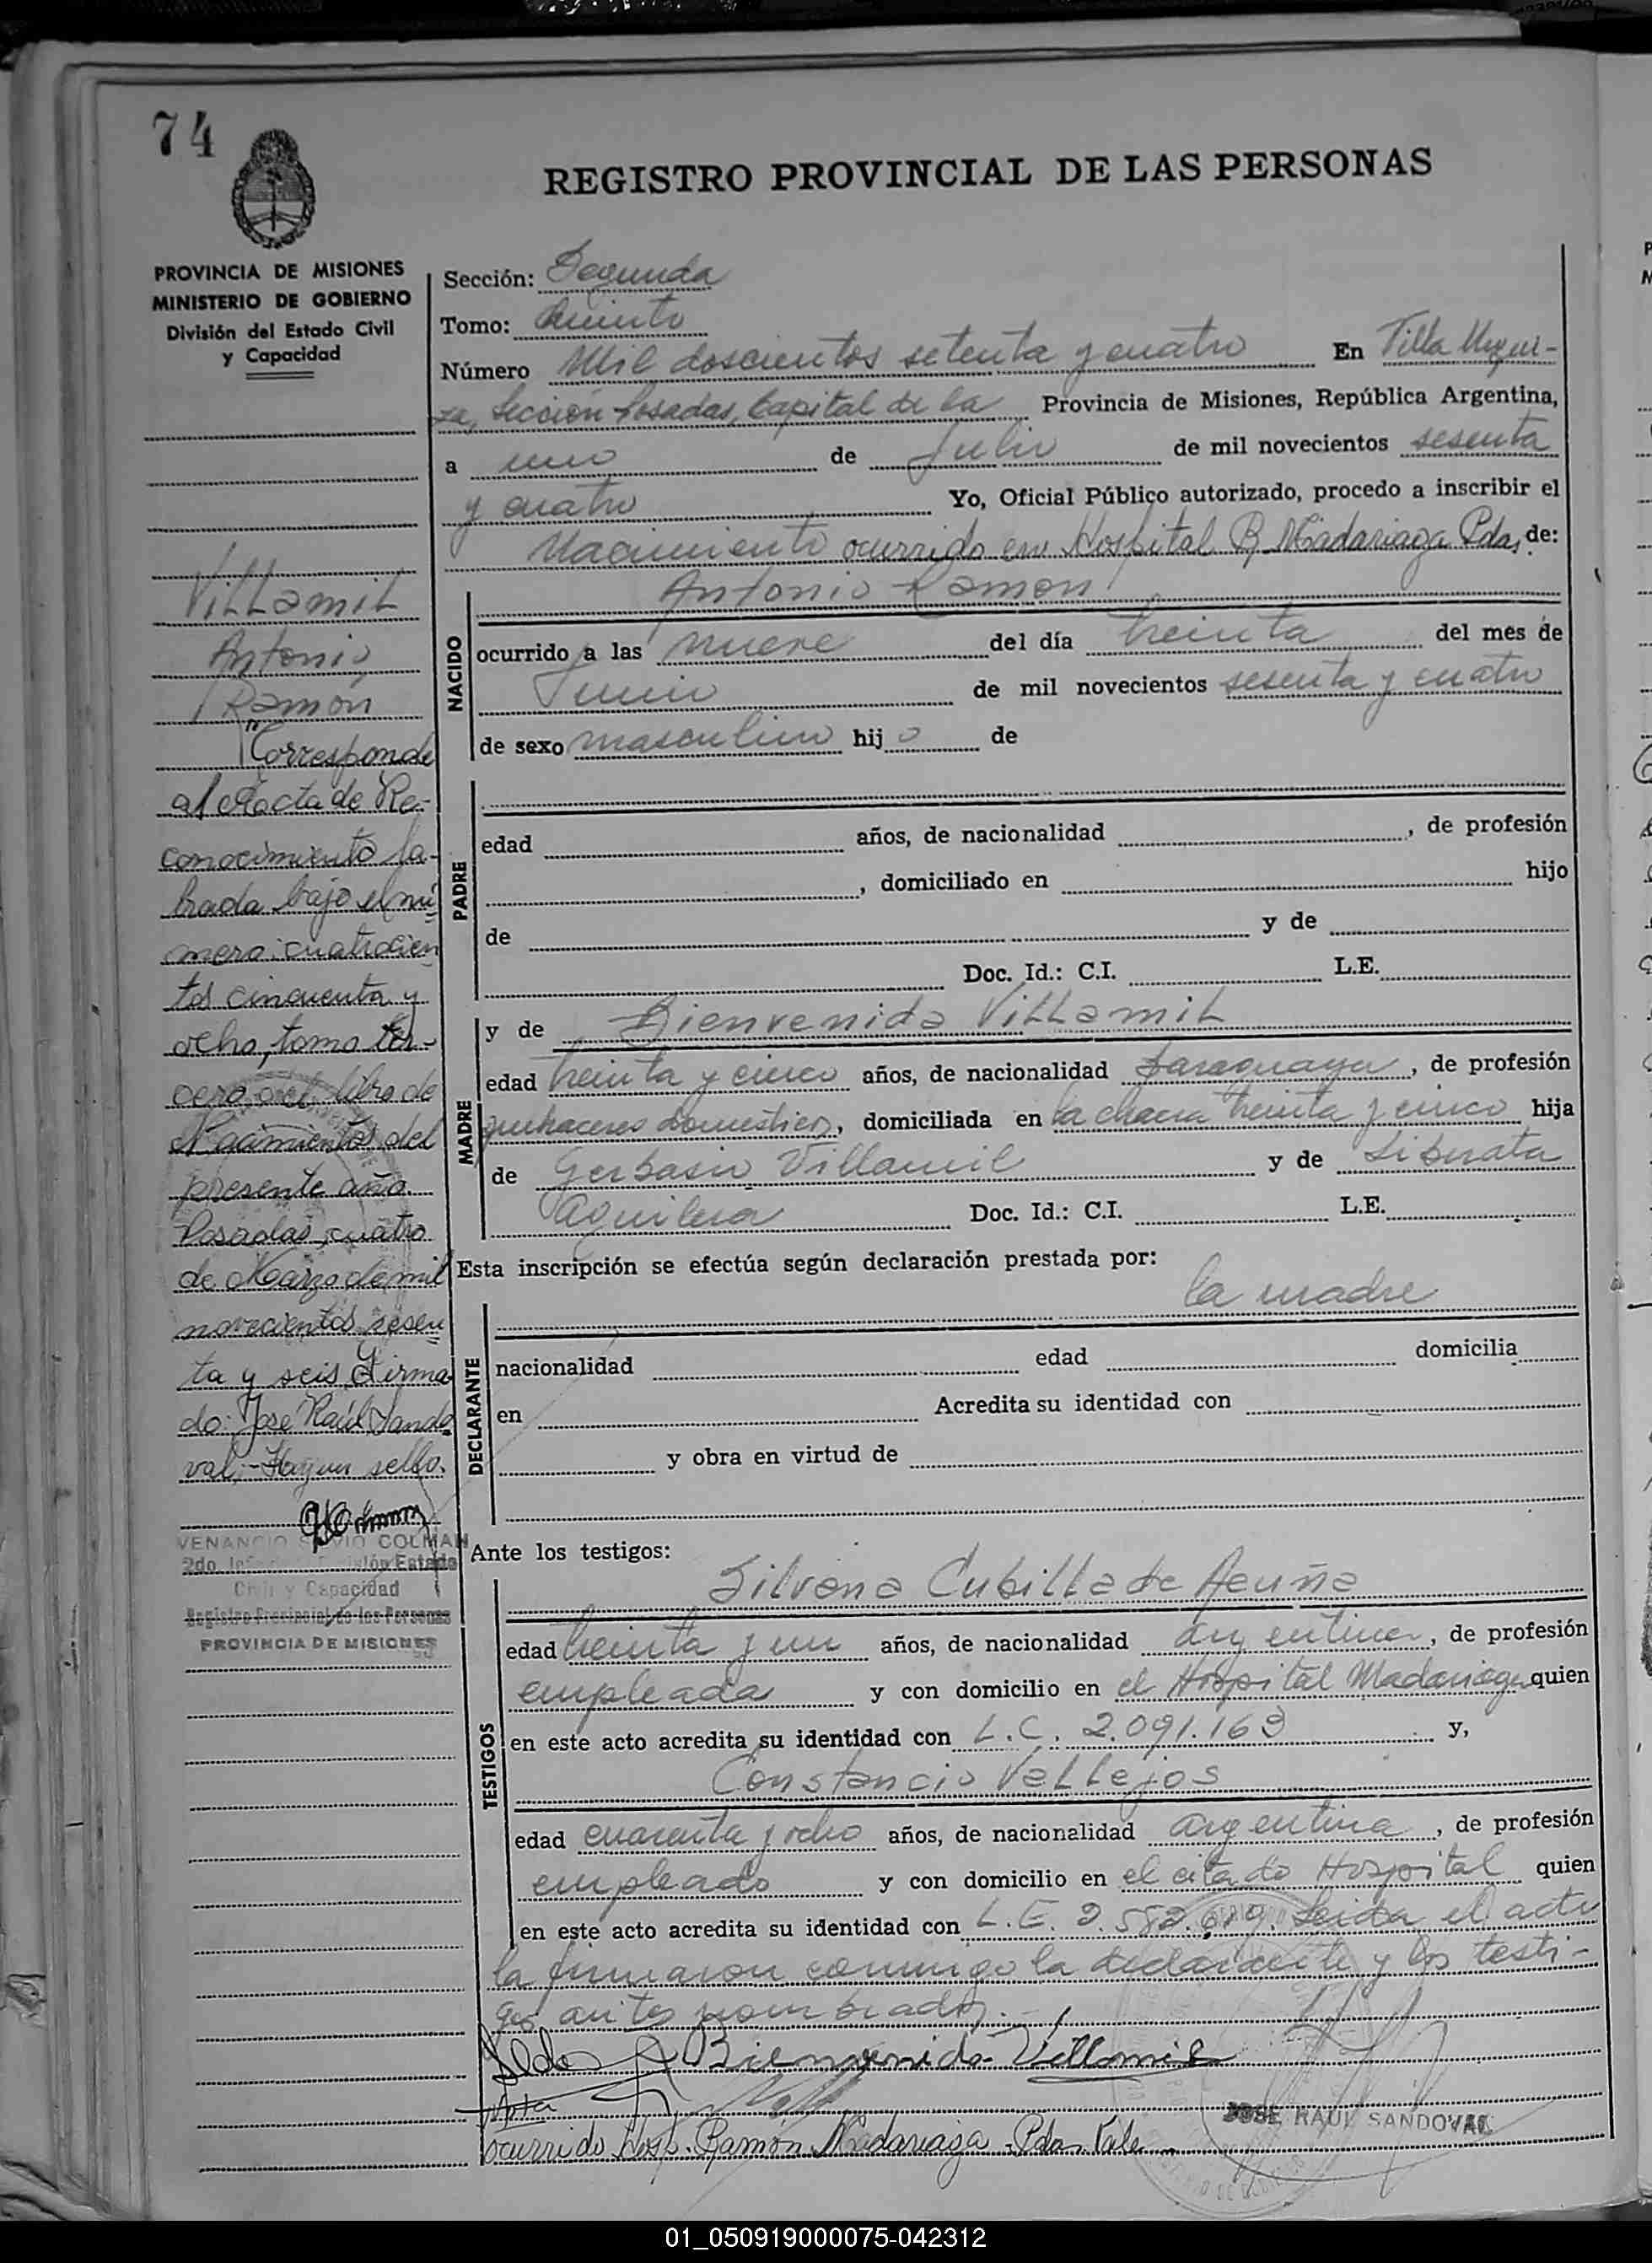 74
REGISTRO PROVINCIAL DE LAS PERSONAS
PROVINCIA DE MISIONES
MINISTERIO DE GOBIERNO
División del Estado Civil
y Capacidad
Villamil
Antonio
Ramón
Corresponde
al Acta de Re-
conocimiento la-
brada bajo el nú
mero: cuatrocien
tos cincuenta y
ocho, tomo ter-
cero del libro de
Nacimientos del
presente año.
Posadas, cuatro
de Marzo de mil
novecientos sesen
ta y seis Firma
do: José Raúl Sando
val.- Hay un sello.
VENANCIO SILVIO COLMAN
2do. División Estado
Civil y Capacidad
Registro Provincial de las Personas
PROVINCIA DE MISIONES
Sección: Segunda
Tomo: Quinto
Número Mil doscientos setenta y cuatro En Villa Urqui-
za, Sección Posadas, Capital de la Provincia de Misiones, República Argentina,
a uno de Julio de mil novecientos sesenta
y cuatro Yo, Oficial Público autorizado, procedo a inscribir el
Nacimiento ocurrido en Hospital R. Madariaga Pdas, de:
NACIDO
Antonio Ramon
ocurrido a las nueve del día treinta del mes de
Junio de mil novecientos sesenta y cuatro
de sexo masculino hijo de
PADRE
edad años, de nacionalidad , de profesión
, domiciliado en hijo
de y de
Doc. Id.: C.I. L.E.
MADRE
y de Bienvenida Villamil
edad treinta y cinco años, de nacionalidad paraguaya, de profesión
quehaceres domésticos, domiciliada en la chacra treinta y cinco hija
de Gerbasio Villamil y de Liberata
Aguilera Doc. Id.: C.I. L.E.
Esta inscripción se efectúa según declaración prestada por:
DECLARANTE
la madre
nacionalidad edad domicilia
en Acredita su identidad con
y obra en virtud de
Ante los testigos:
TESTIGOS
Silvana Cubilla de Acuña
edad treinta y un años, de nacionalidad argentina, de profesión
empleada y con domicilio en el Hospital Madariaga quien
en este acto acredita su identidad con L.C. 2.091.163 y,
Constancio Vallejos
edad cuarenta y ocho años, de nacionalidad argentina, de profesión
empleado y con domicilio en el citado Hospital quien
en este acto acredita su identidad con L.E. 2.582.619. Leida el acta
la firmaron conmigo la declarante y los testi-
gos antes nombrados.-
Bienvenida Villamil
JOSE RAUL SANDOVAL
ocurrido Hosp. Ramón Madariaga - Pdas Vale
01_050919000075-042312